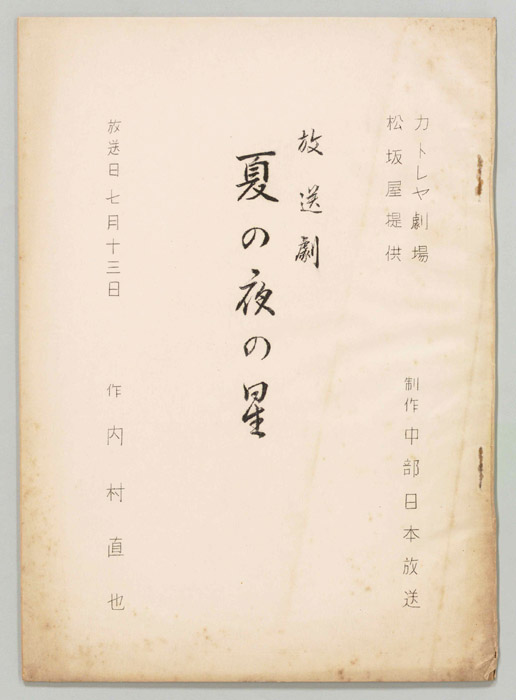 カトレヤ劇場
松坂屋提供
制作中部日本放送
放送劇
夏の夜の星
放送日七月十三日
作 内村直也